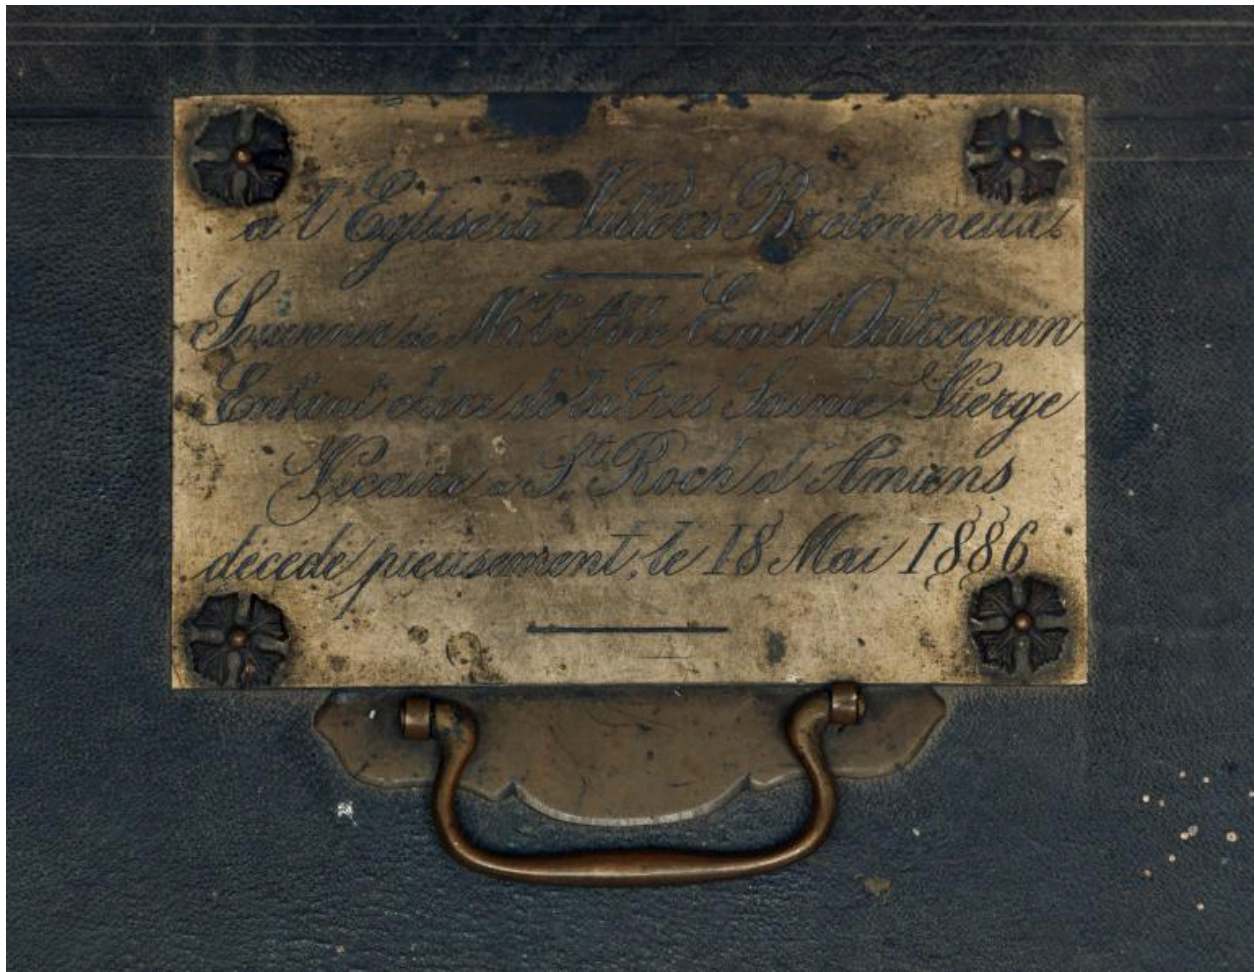 a l'Eglise de Villers-Bretonneux
Souvenir de Mr l'Abbé Ernest Outrequin
Enfant cher de la Très Sainte Vierge
Vicaire a St. Roch d'Amiens
décédé pieusement, le 18 Mai 1886